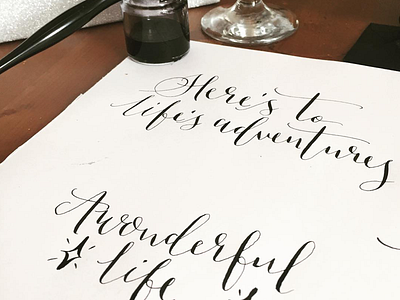 Here's to
life's adventures
A wonderful
life is